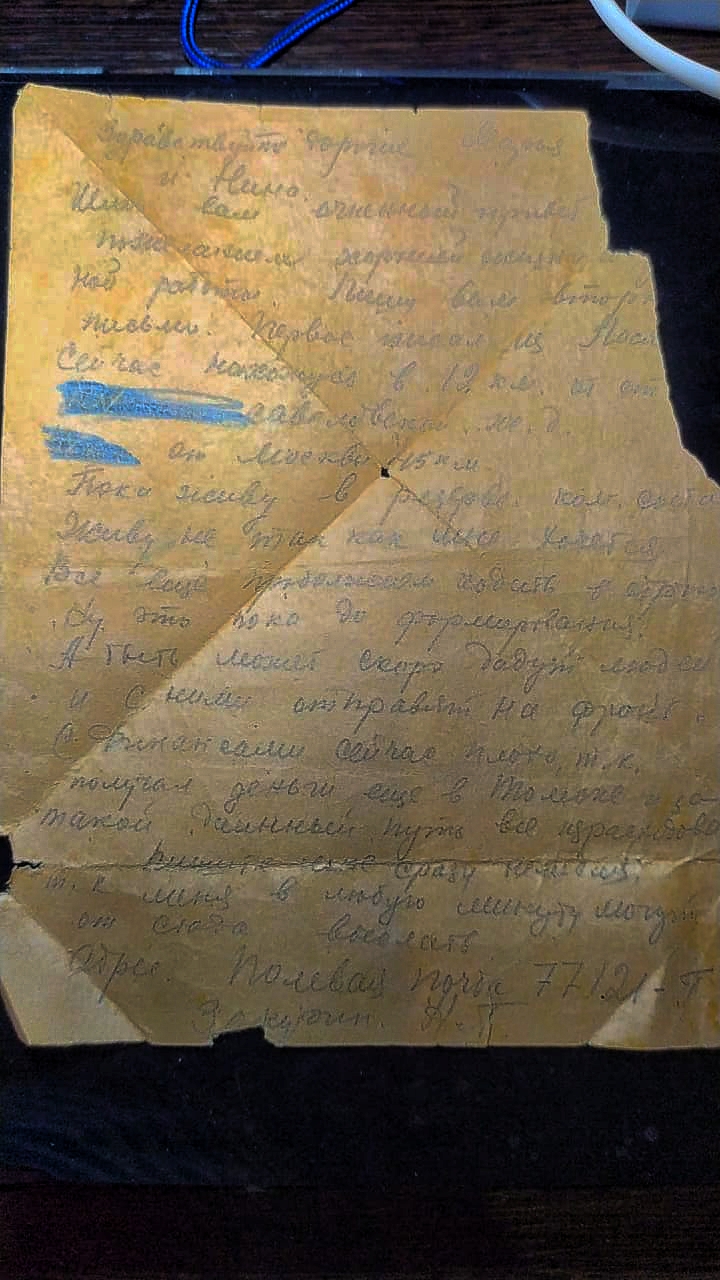 Здравствуйте дорогие Маруся
и Нина.
Шлю вам огненный привет
пожеланием хорошей жизни
ной работы. Пишу вам втор
письмо. Первое писал из
Сейчас нахожусь в 12 км. от
савеловской ж. д.
от Москвы 45 км
Пока живу в резерве ком. соста
Живу не так как мне хочется
Все еще продолжаем ходить в
Ну это пока до формирования.
А быть может скоро дадут людей
и с ними отправят на фронт.
С финансами сейчас плохо, т.к.
получал деньги еще в и за
такой длинный путь все израсходова
Пишите сразу
т.к меня в любую минуту могут
от сюда выслать
Адрес. Полевая почта 77121-Т
Н.